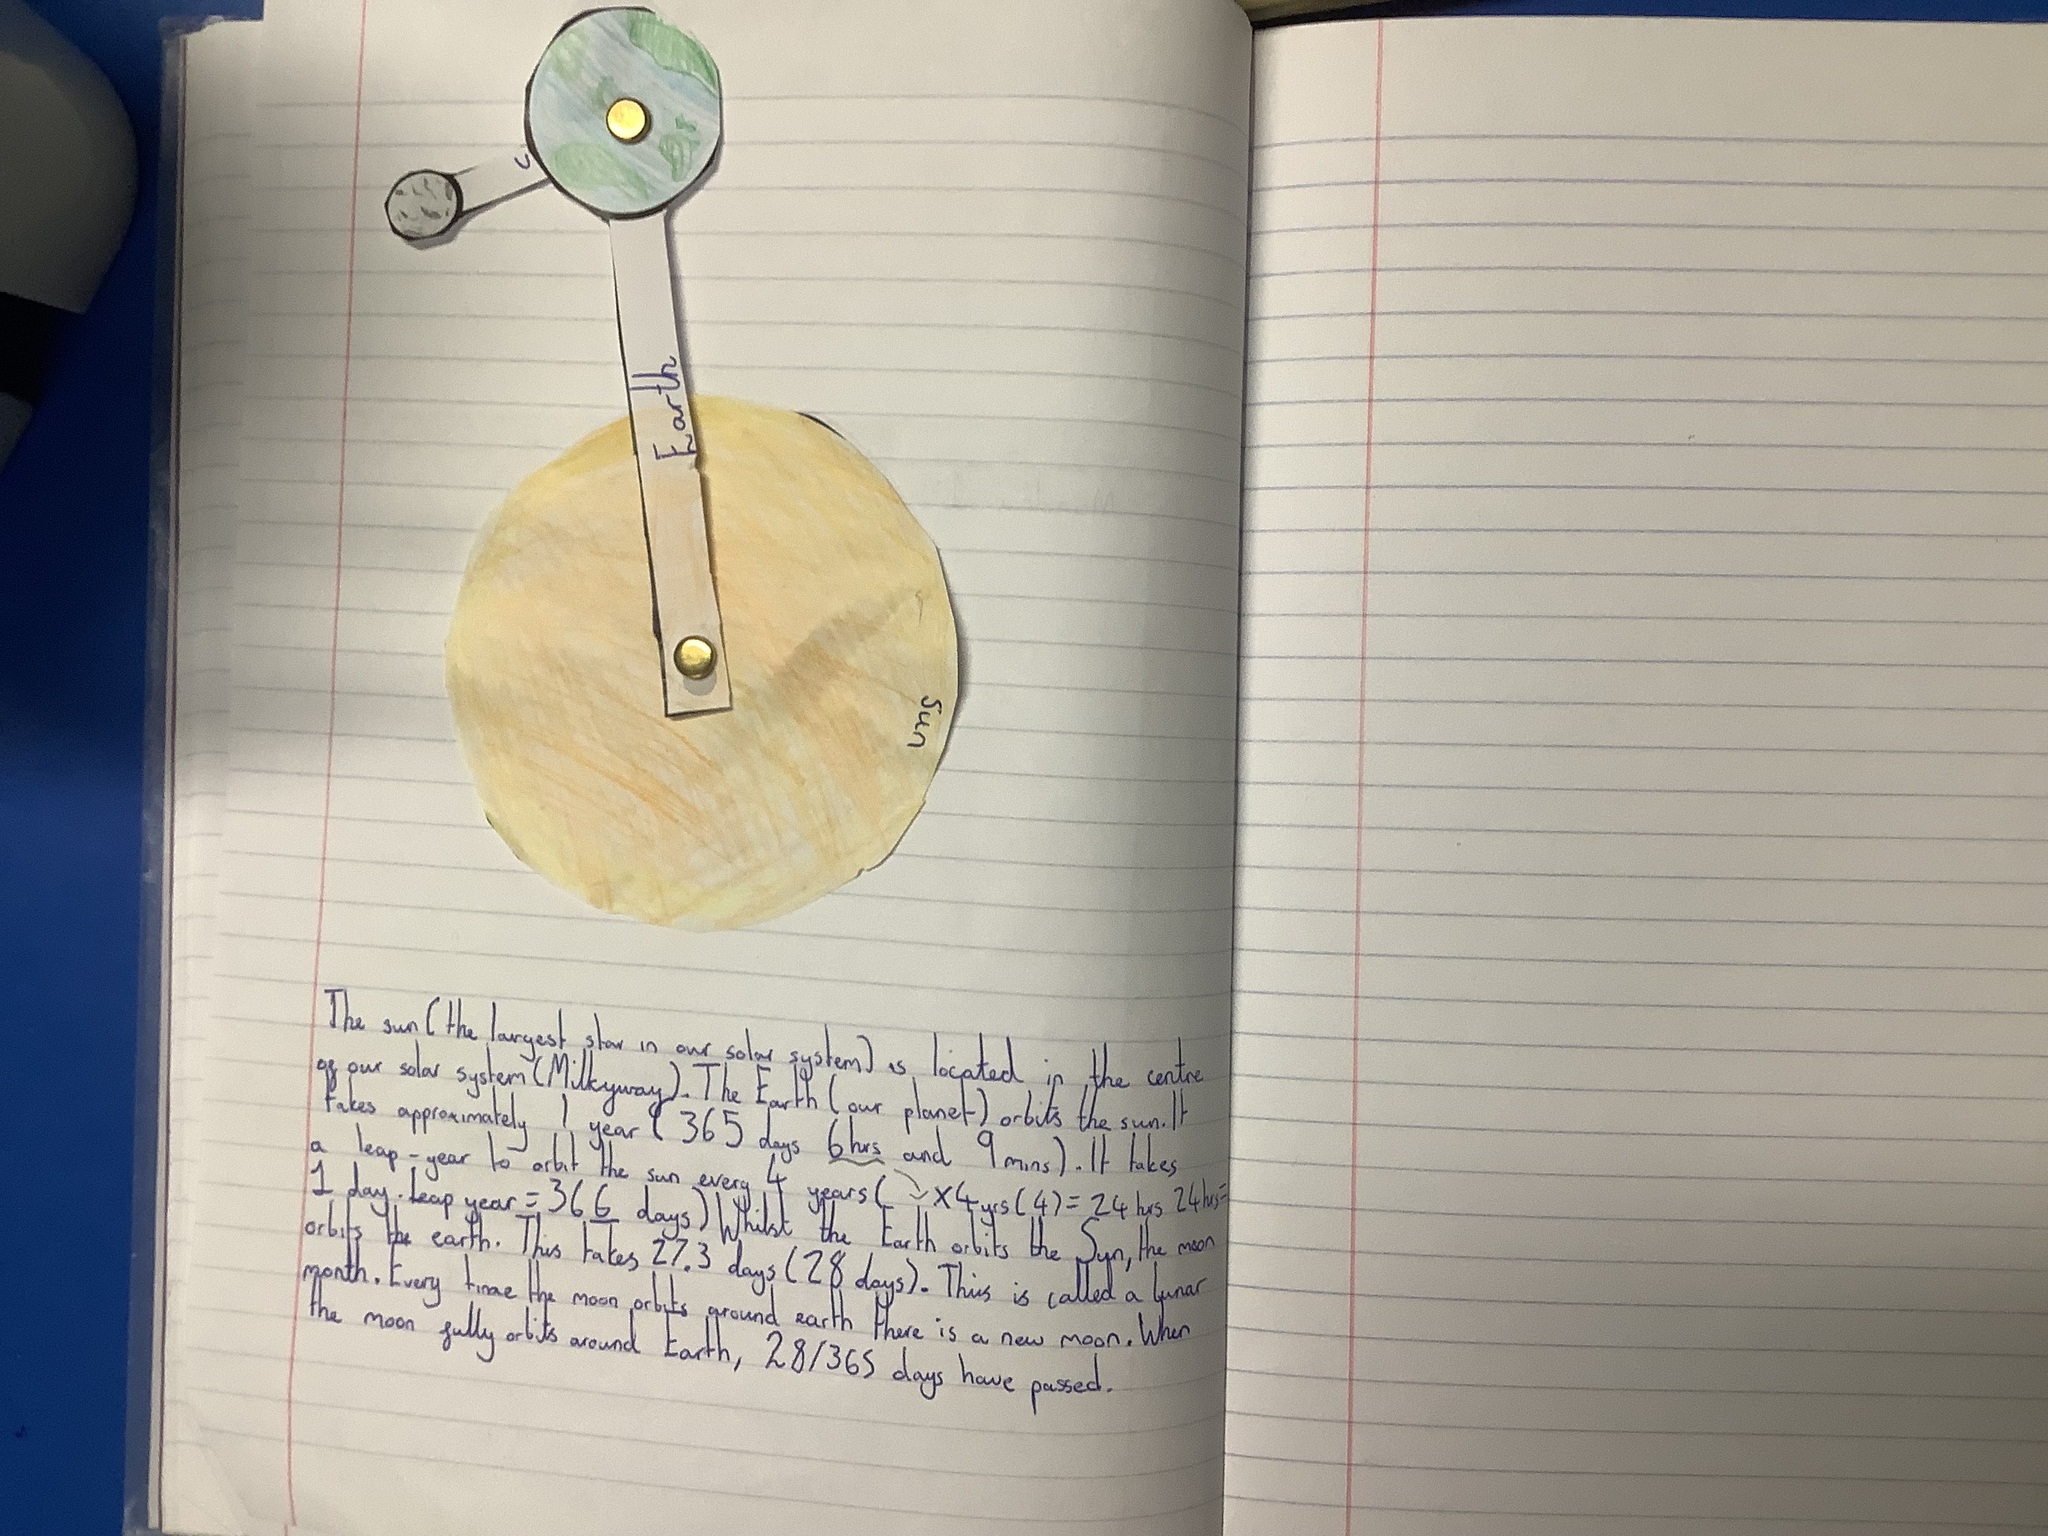 Earth
Sun
The sun (the largest star in our solar system) is located in the centre
of our solar system (Milkyway). The Earth (our planet) orbits the sun. It
takes approximately 1 year (365 days 6hrs and 9mins). It takes
a leap-year to orbit the sun every 4 years ( x4yrs (4) = 24 hrs 24hrs=
1 day. Leap year = 366 days) Whilst the Earth orbits the Sun, the moon
orbits the earth. This takes 27.3 days (28 days). This is called a lunar
month. Every time the moon orbits around earth there is a new moon. When
the moon fully orbits around Earth, 28/365 days have passed.